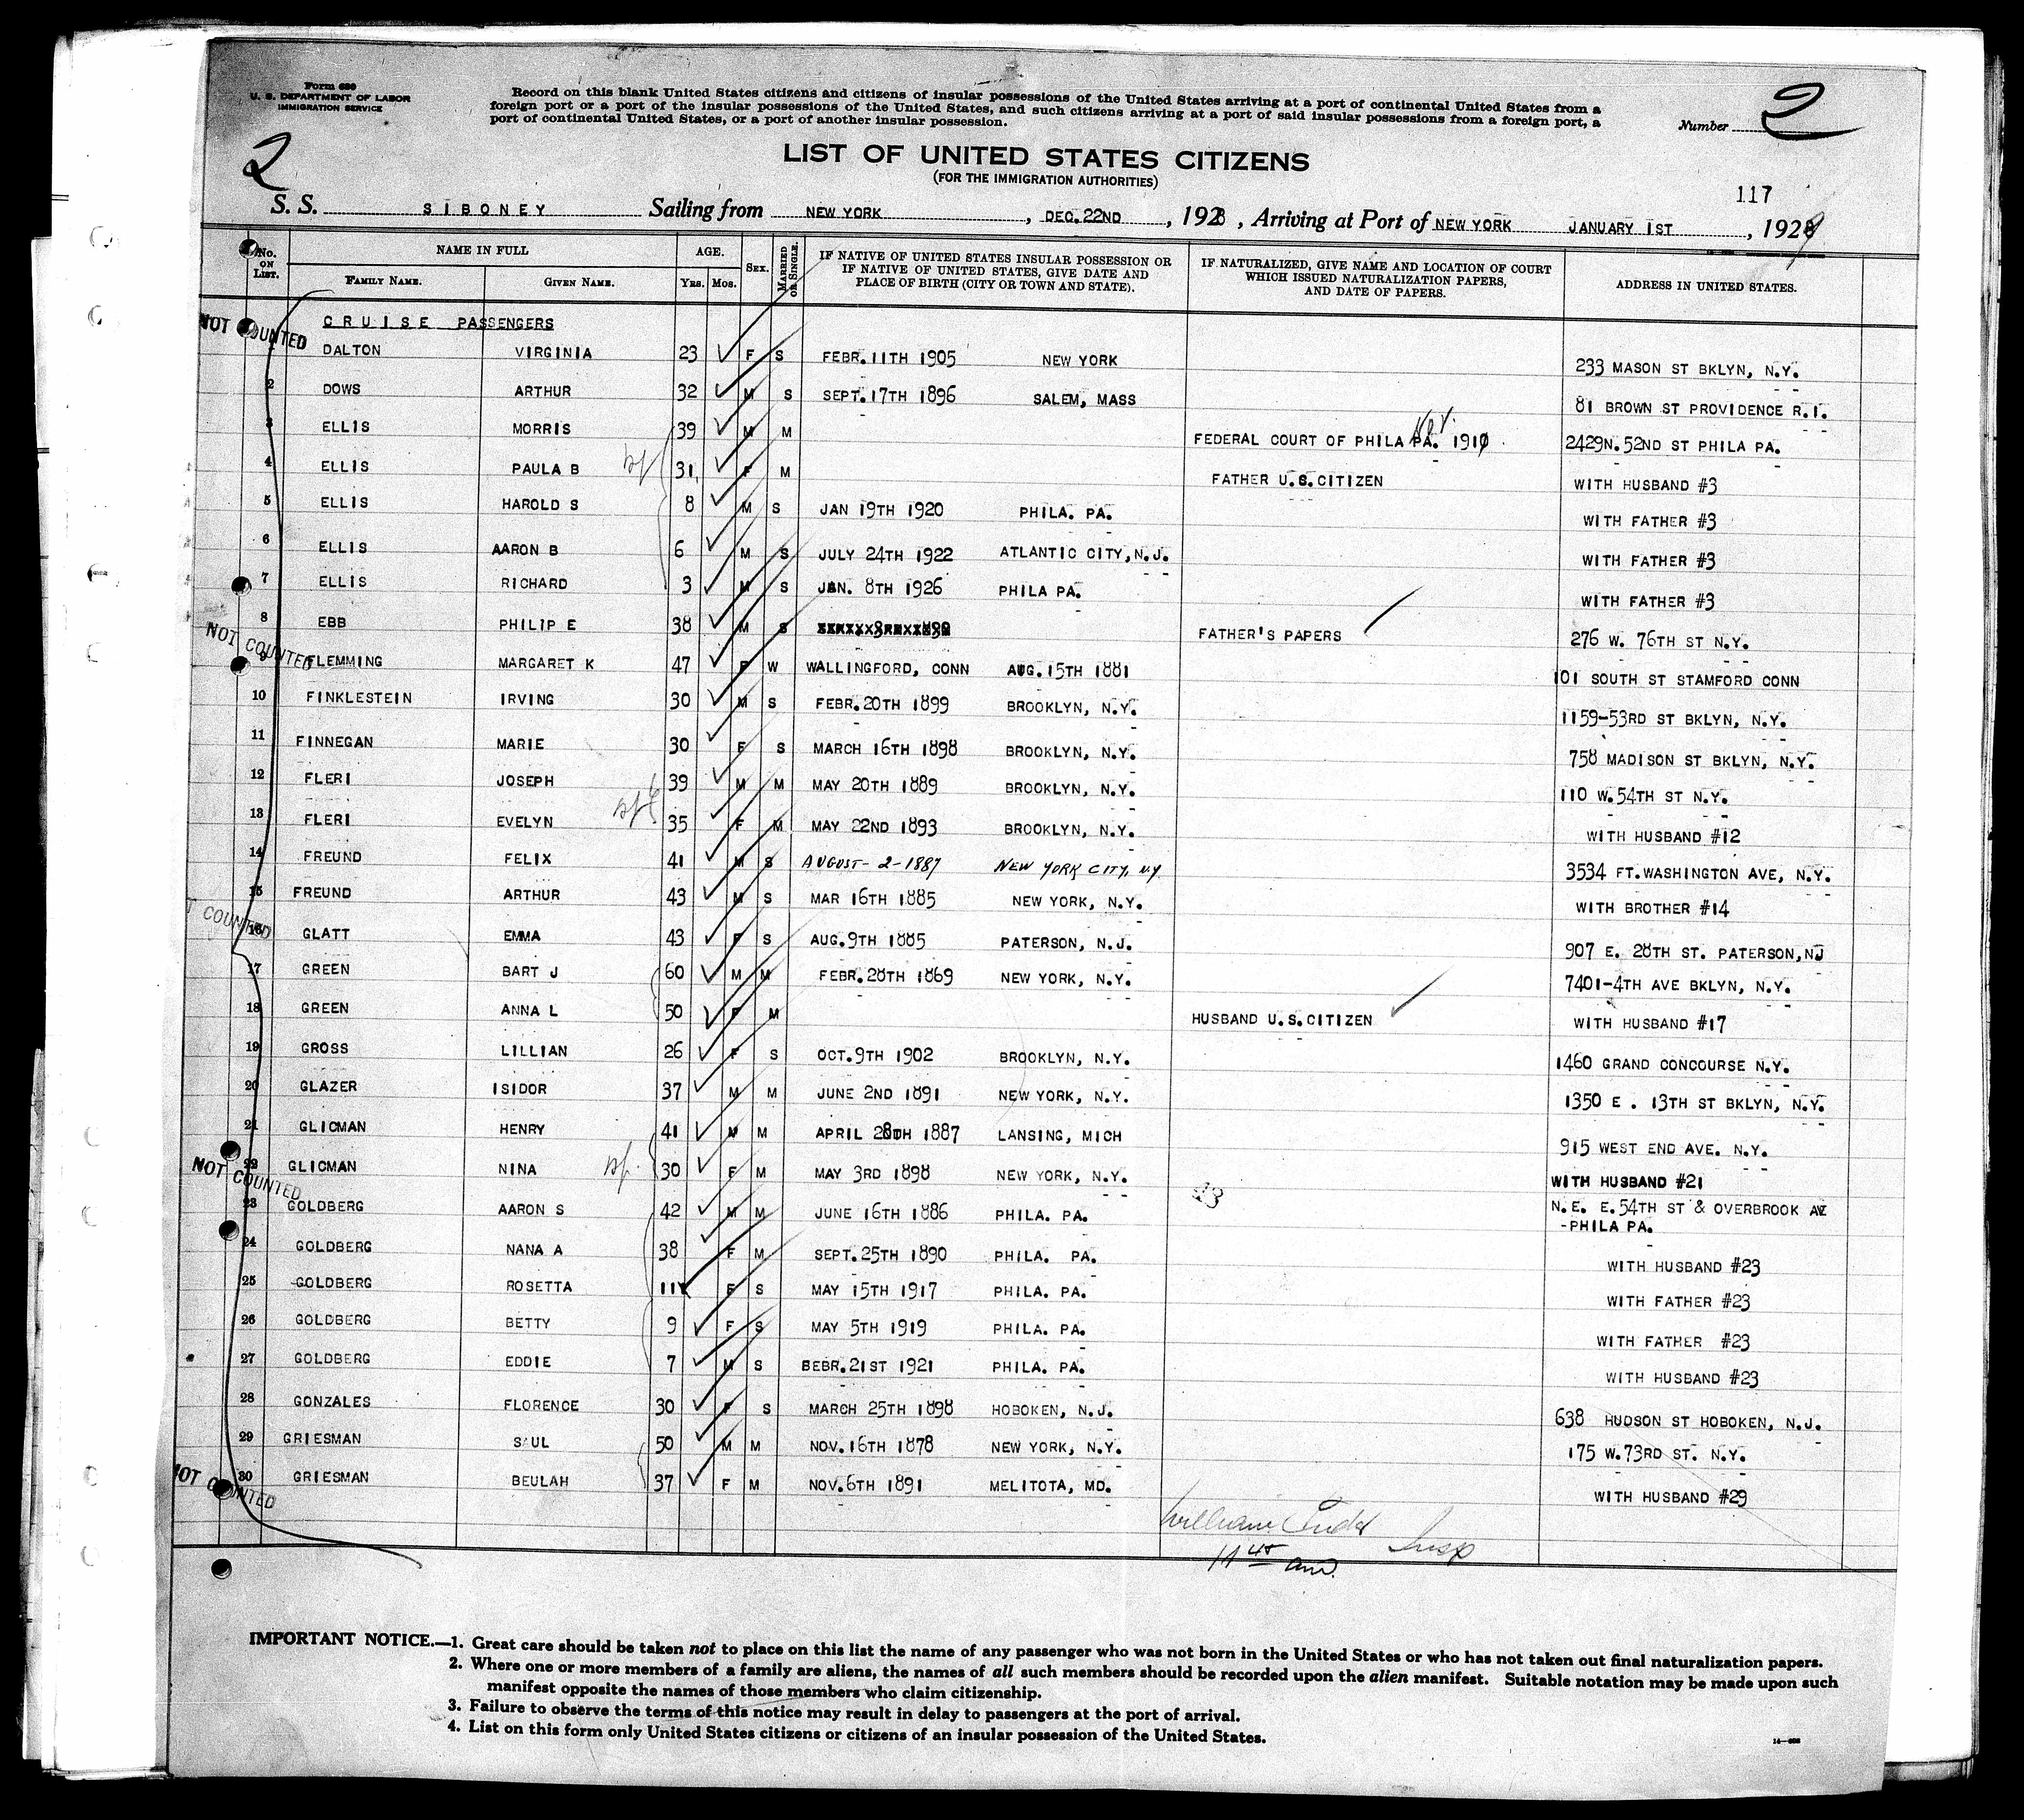 Form 630
U. S. DEPARTMENT OF LABOR
IMMIGRATION SERVICE
Record on this blank United States citizens and citizens of insular possessions of the United States arriving at a port of continental United States from a
foreign port or a port of the insular possessions of the United States, and such citizens arriving at a port of said insular possessions from a foreign port, a
port of continental United States, or a port of another insular possession.
Number 2
2
LIST OF UNITED STATES CITIZENS
(FOR THE IMMIGRATION AUTHORITIES)
117
S. S. SIBONEY Sailing from NEW YORK , DEC. 22ND , 1928 , Arriving at Port of NEW YORK JANUARY 1ST , 1929
No. ON LIST. NAME IN FULL FAMILY NAME. GIVEN NAME. AGE. YRS. MOS. SEX. MARRIED OR SINGLE. IF NATIVE OF UNITED STATES INSULAR POSSESSION OR IF NATIVE OF UNITED STATES, GIVE DATE AND PLACE OF BIRTH (CITY OR TOWN AND STATE). IF NATURALIZED, GIVE NAME AND LOCATION OF COURT WHICH ISSUED NATURALIZATION PAPERS, AND DATE OF PAPERS. ADDRESS IN UNITED STATES.
NOT COUNTED
CRUISE PASSENGERS
DALTON VIRGINIA 23 F S FEBR. 11TH 1905 NEW YORK 233 MASON ST BKLYN, N.Y.
2 DOWS ARTHUR 32 M S SEPT. 17TH 1896 SALEM, MASS 81 BROWN ST PROVIDENCE R.I.
3 ELLIS MORRIS 39 M M FEDERAL COURT OF PHILA PA. 1910 2429N. 52ND ST PHILA PA.
4 ELLIS PAULA B 31 F M FATHER U.S.CITIZEN WITH HUSBAND #3
5 ELLIS HAROLD S 8 M S JAN 19TH 1920 PHILA. PA. WITH FATHER #3
6 ELLIS AARON B 6 M S JULY 24TH 1922 ATLANTIC CITY, N.J. WITH FATHER #3
7 ELLIS RICHARD 3 M S JAN. 8TH 1926 PHILA PA. WITH FATHER #3
8 EBB PHILIP E 38 M S FATHER'S PAPERS 276 W. 76TH ST N.Y.
NOT COUNTED
9 FLEMMING MARGARET K 47 F W WALLINGFORD, CONN AUG. 15TH 1881 101 SOUTH ST STAMFORD CONN
10 FINKLESTEIN IRVING 30 M S FEBR. 20TH 1899 BROOKLYN, N.Y. 1159-53RD ST BKLYN, N.Y.
11 FINNEGAN MARIE 30 F S MARCH 16TH 1898 BROOKLYN, N.Y. 758 MADISON ST BKLYN, N.Y.
12 FLERI JOSEPH 39 M M MAY 20TH 1889 BROOKLYN, N.Y. 110 W. 54TH ST N.Y.
13 FLERI EVELYN 35 F M MAY 22ND 1893 BROOKLYN, N.Y. WITH HUSBAND #12
14 FREUND FELIX 41 M S AUGUST-2-1887 NEW YORK CITY, N.Y. 3534 FT.WASHINGTON AVE, N.Y.
15 FREUND ARTHUR 43 M S MAR 16TH 1885 NEW YORK, N.Y. WITH BROTHER #14
T COUNTED
16 GLATT EMMA 43 F S AUG. 9TH 1885 PATERSON, N.J. 907 E. 28TH ST. PATERSON, NJ
17 GREEN BART J 60 M M FEBR. 28TH 1869 NEW YORK, N.Y. 7401-4TH AVE BKLYN, N.Y.
18 GREEN ANNA L 50 F M HUSBAND U.S.CITIZEN WITH HUSBAND #17
19 GROSS LILLIAN 26 F S OCT. 9TH 1902 BROOKLYN, N.Y. 1460 GRAND CONCOURSE N.Y.
20 GLAZER ISIDOR 37 M M JUNE 2ND 1891 NEW YORK, N.Y. 1350 E . 13TH ST BKLYN, N.Y.
21 GLICMAN HENRY 41 M M APRIL 28TH 1887 LANSING, MICH 915 WEST END AVE. N.Y.
22 GLICMAN NINA 30 F M MAY 3RD 1898 NEW YORK, N.Y. WITH HUSBAND #21
NOT COUNTED
23 GOLDBERG AARON S 42 M M JUNE 16TH 1886 PHILA. PA. N.E. E. 54TH ST & OVERBROOK AVE
-PHILA PA.
24 GOLDBERG NANA A 38 F M SEPT. 25TH 1890 PHILA. PA. WITH HUSBAND #23
25 GOLDBERG ROSETTA 11 F S MAY 15TH 1917 PHILA. PA. WITH FATHER #23
26 GOLDBERG BETTY 9 F S MAY 5TH 1919 PHILA. PA. WITH FATHER #23
27 GOLDBERG EDDIE 7 M S BEBR. 21ST 1921 PHILA. PA. WITH HUSBAND #23
28 GONZALES FLORENCE 30 F S MARCH 25TH 1898 HOBOKEN, N.J. 638 HUDSON ST HOBOKEN, N.J.
29 GRIESMAN SAUL 50 M M NOV. 16TH 1878 NEW YORK, N.Y. 175 W. 73RD ST. N.Y.
30 GRIESMAN BEULAH 37 F M NOV. 6TH 1891 MELITOTA, MD. WITH HUSBAND #29
NOT COUNTED
William Insp
11 45 am.
IMPORTANT NOTICE.—1. Great care should be taken not to place on this list the name of any passenger who was not born in the United States or who has not taken out final naturalization papers.
2. Where one or more members of a family are aliens, the names of all such members should be recorded upon the alien manifest. Suitable notation may be made upon such
manifest opposite the names of those members who claim citizenship.
3. Failure to observe the terms of this notice may result in delay to passengers at the port of arrival.
4. List on this form only United States citizens or citizens of an insular possession of the United States.